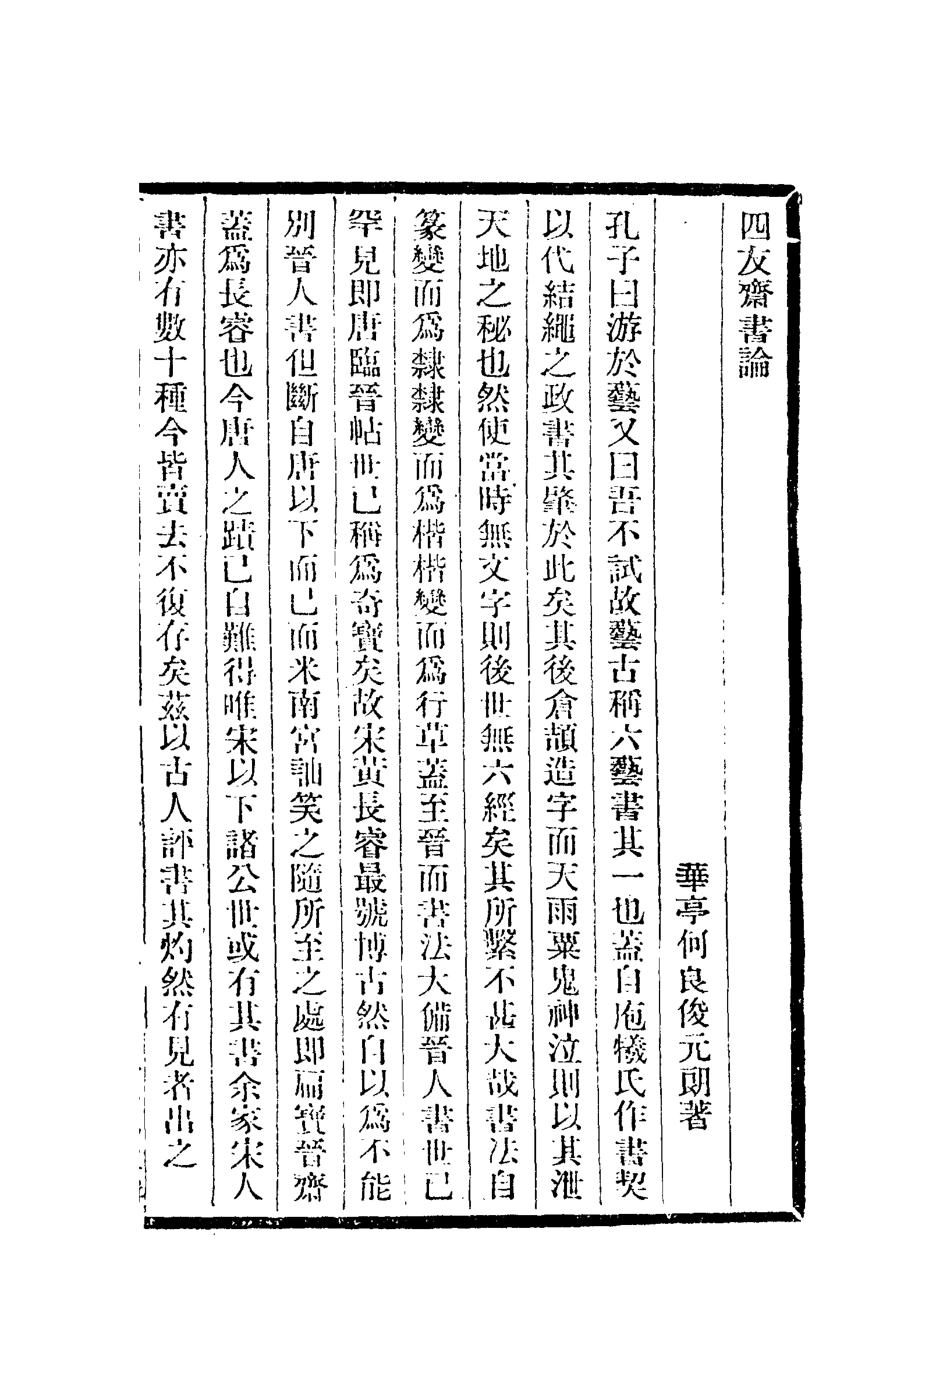 四友齋書論
華亭何良俊元朗著
孔子曰游於藝又曰吾不試故藝古稱六藝書其一也蓋自庖犧氏作書契
以代結繩之政書其肇於此矣其後倉頡造字而天雨粟鬼神泣則以其泄
天地之秘也然使當時無文字則後世無六經矣其所繫不甚大哉書法自
篆變而爲隸隸變而爲楷楷變而爲行草蓋至晉而書法大備晉人書世已
罕見即唐臨晉帖世已稱爲奇寶矣故宋黃長睿最號博古然自以爲不能
別晉人書但斷自唐以下而已而米南宮訕笑之隨所至之處即扁寶晉齋
蓋爲長睿也今唐人之蹟已自難得唯宋以下諸公世或有其書余家宋人
書亦有數十種今皆賣去不復存矣茲以古人評書其灼然有見者出之